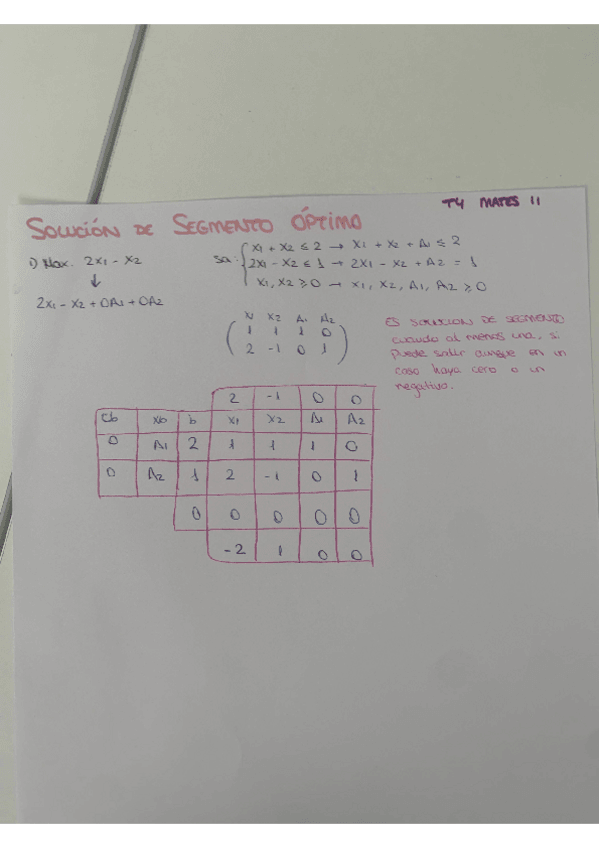 T4 MATES II
SOLUCIÓN DE SEGMENTO ÓPTIMO
1) Max. 2x1 - x2
↓
2x1 - x2 + 0A1 + 0A2
sa: { x1 + x2 ≤ 2 → x1 + x2 + A1 ≤ 2
2x1 - x2 ≤ 1 → 2x1 - x2 + A2 = 1
x1, x2 ≥ 0 → x1, x2, A1, A2 ≥ 0
x1 x2 A1 A2
1 1 1 0
2 -1 0 1
ES SOLUCION DE SEGMENTO
cuando al menos una, si
puede salir aunque en un
caso haya cero o un
negativo.
2 -1 0 0
Cb xb b x1 x2 A1 A2
0 A1 2 1 1 1 0
0 A2 1 2 -1 0 1
0 0 0 0 0
-2 1 0 0